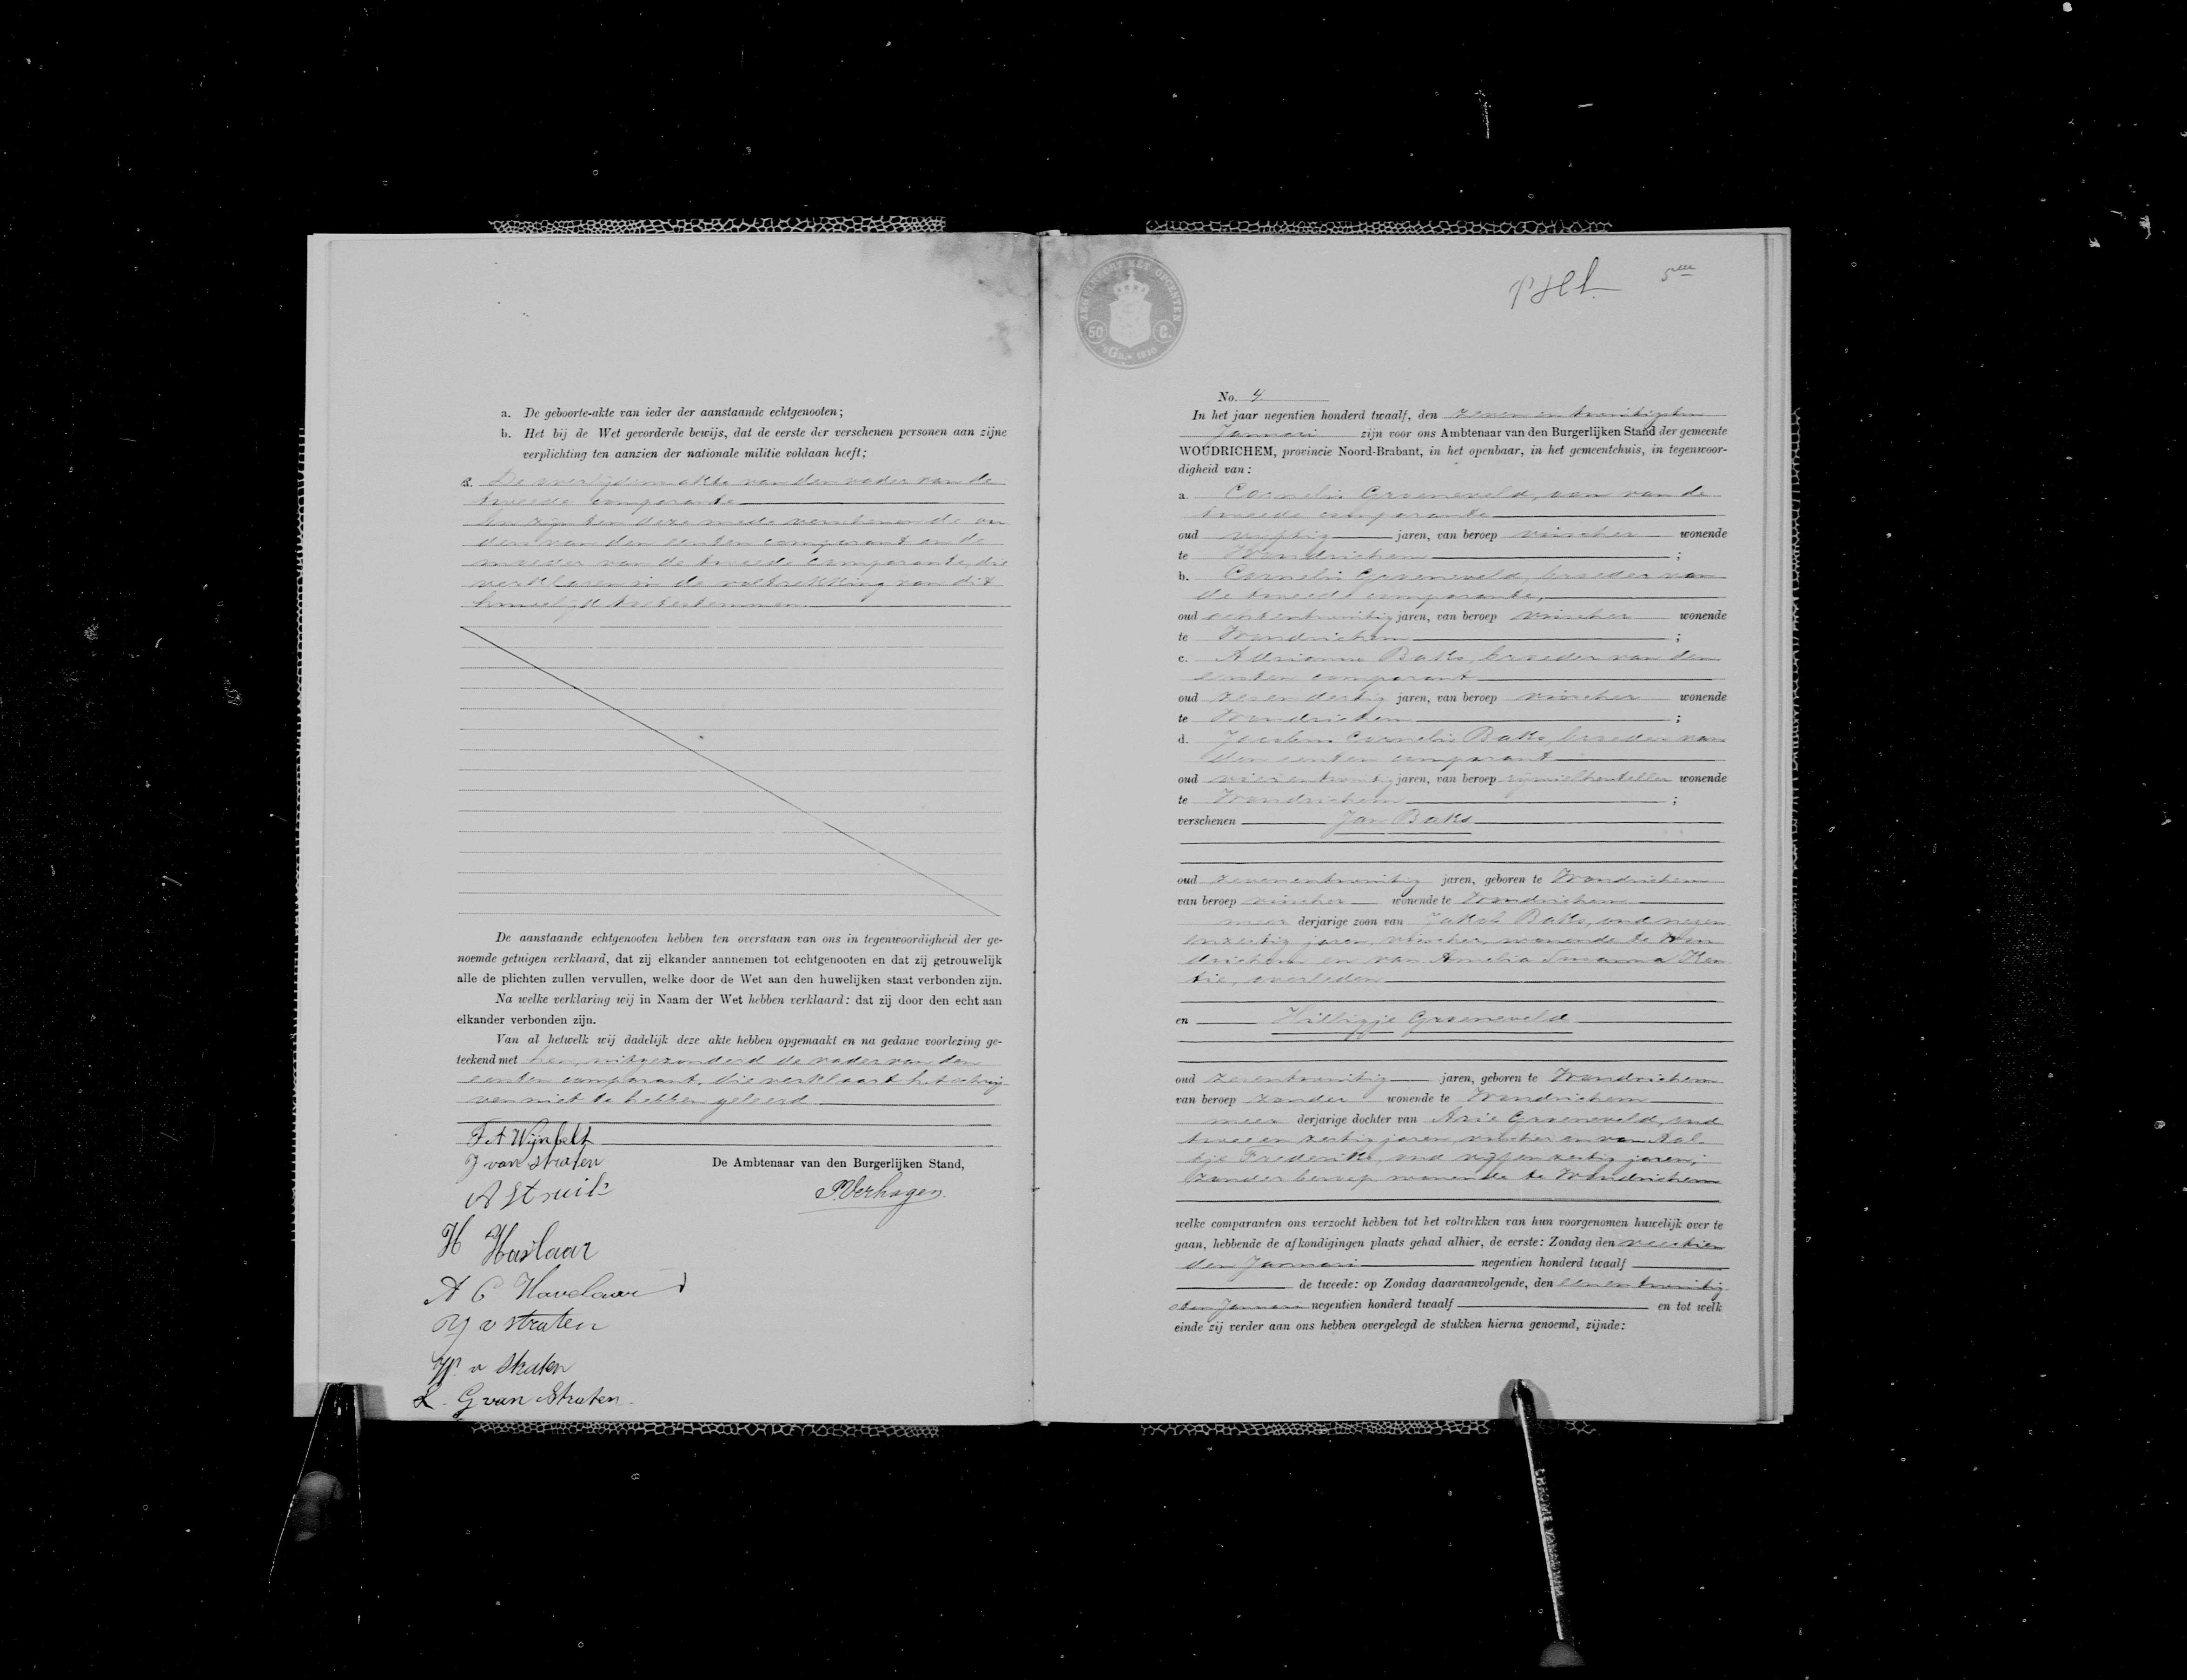 a. De geboorte-akte van ieder der aanstaande echtgenooten;
b. Het bij de Wet gevorderde bewijs, dat de eerste der verschenen personen aan zijne
verplichting ten aanzien der nationale militie voldaan heeft;
De overlijdensakte van den vader van de
tweede comparante
En zijn ten deze mede verschenen de va
der van den eersten comparant en de
moeder van de tweede comparante, die
verklaren in de voltrekking van dit
huwelijk toetestemmen.
De aanstaande echtgenooten hebben ten overstaan van ons in tegenwoordigheid der ge-
noemde getuigen verklaard, dat zij elkander aannemen tot echtgenooten en dat zij getrouwelijk
alle de plichten zullen vervullen, welke door de Wet aan den huwelijken staat verbonden zijn.
Na welke verklaring wij in Naam der Wet hebben verklaard: dat zij door den echt aan
elkander verbonden zijn.
Van al hetwelk wij dadelijk deze akte hebben opgemaakt en na gedane voorlezing ge-
teekend met hen, uitgezonderd de vader van den
eersten comparant, die verklaart het schrij-
ven niet te hebben geleerd
F A Wijnbelt
J van straten
De Ambtenaar van den Burgerlijken Stand,
A Struik
P. Verhagen.
H Haslaar
A C Havelaar
J v straten
W v Straten
L. G van Straten.
ZEGELVANRECHT MET OPCENTEN
50 C.
5de
No. 4
In het jaar negentien honderd twaalf, den zeven en twintigsten
Januari zijn voor ons Ambtenaar van den Burgerlijken Stand der gemeente
WOUDRICHEM, provincie Noord-Brabant, in het openbaar, in het gemeentehuis, in tegenwoor-
digheid van:
a. Cornelis Groeneveld, oom van de
tweede comparante
oud vijftig jaren, van beroep visscher wonende
te Woudrichem ;
b. Cornelis Groeneveld, broeder van
de tweede comparante,
oud achtentwintig jaren, van beroep visscher wonende
te Woudrichem ;
c. Adrianus Baks, broeder van den
eersten comparant
oud zesendertig jaren, van beroep visscher wonende
te Woudrichem ;
d. Jacobus Cornelis Baks, broeder van
den eersten comparant
oud vierentwintig jaren, van beroep rijwielhersteller wonende
te Woudrichem ;
verschenen Jan Baks
oud zevenentwintig jaren, geboren te Woudrichem
van beroep visscher wonende te Woudrichem
meer derjarige zoon van Jakob Baks, oud negen
enzestig jaren, visscher, wonende te Wou
drichem en van Amelia Susanna Ken
tie, overleden
en Hilligje Groeneveld
oud zesentwintig jaren, geboren te Woudrichem
van beroep zonder wonende te Woudrichem
meer derjarige dochter van Arie Groeneveld, oud
twee en zestig jaren, visscher en van Aal-
tje Frederiks, oud vijf en zestig jaren,
zonder beroep wonende te Woudrichem
welke comparanten ons verzocht hebben tot het voltrekken van hun voorgenomen huwelijk over te
gaan, hebbende de afkondigingen plaats gehad alhier, de eerste: Zondag den veertien
den Januari negentien honderd twaalf
de tweede: op Zondag daaraanvolgende, den eenentwintig
sten Januari negentien honderd twaalf en tot welk
einde zij verder aan ons hebben overgelegd de stukken hierna genoemd, zijnde: